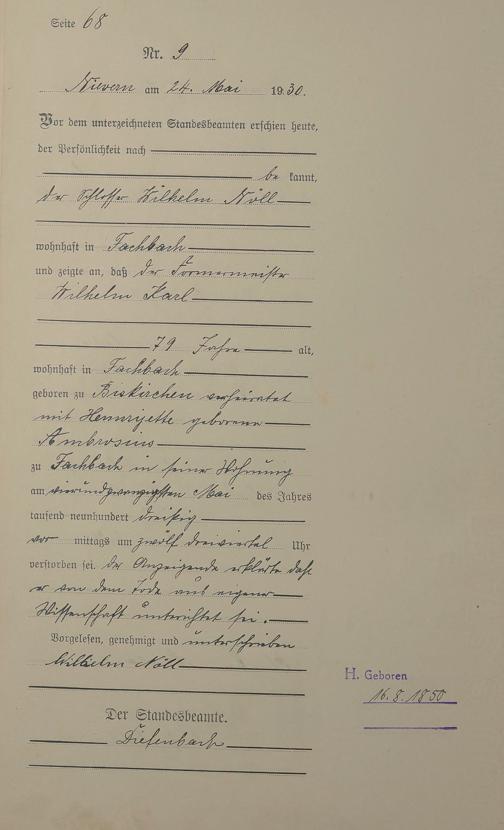 Seite 68
Nr. 9
Nievern am 24. Mai 1930.
Vor dem unterzeichneten Standesbeamten erschien heute,
der Persönlichkeit nach
be kannt,
der Schlosser Wilhelm Nöll
wohnhaft in Fachbach
und zeigte an, daß der Formermeister
Wilhelm Karl
79 Jahre alt,
wohnhaft in Fachbach
geboren zu Biskirchen verheiratet
mit Hennriyette geborene
Ambrosius
zu Fachbach in seiner Wohnung
am vierundzwanzigsten Mai des Jahres
tausend neunhundert dreißig
vor mittags um zwölf dreiviertel Uhr
verstorben sei. Der Anzeigende erklärte daß
er von dem Tode aus eigener
Wissenschaft unterichtet sei.
Vorgelesen, genehmigt und unterschrieben
Wilhelm Nöll
Der Standesbeamte.
Diefenbach
H. Geboren
16.8.1850